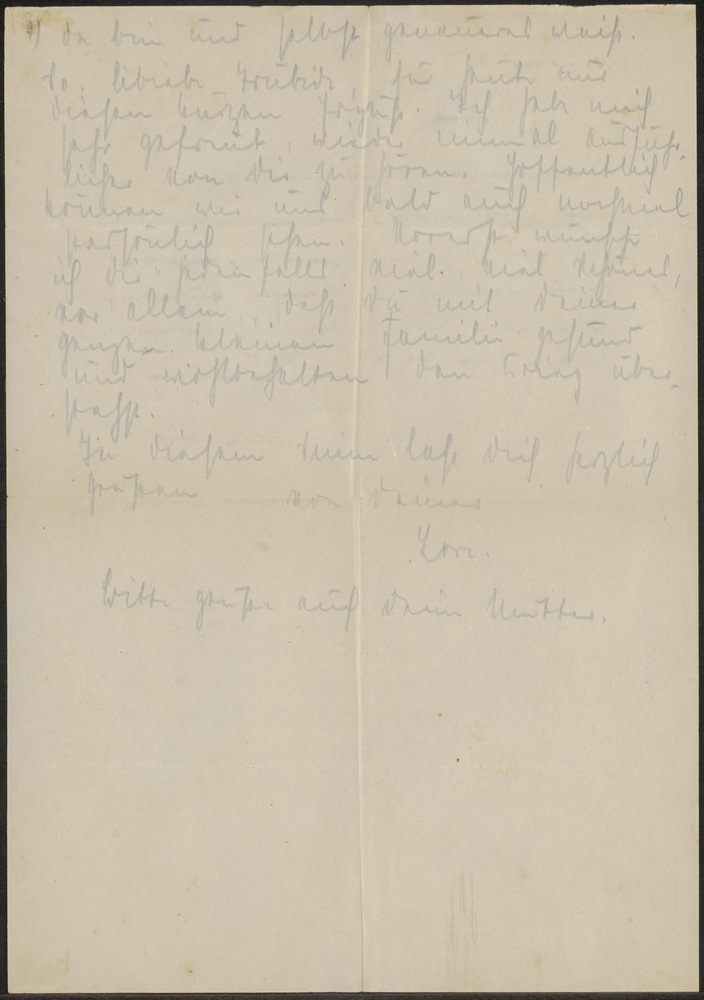 4) da bin und selbst genaueres weiß.
So, liebe Trudi, für heute nur
diesen kurzen Gruß. Ich hab mich
sehr gefreut, wieder einmal ausführ-
licher von Dir zu hören. Hoffentlich
können wir uns bald auch nochmal
persönlich sehen. Vorerst wünsche
ich dir jedenfalls viel, viel Schönes,
vor allem, daß Du mit Deiner
ganzen kleinen Familie gesund
und wohlbehalten den Krieg über-
stehst.
In diesem Sinn laß Dich herzlich
grüßen von Deiner
Lore.
Bitte grüße auch Deine Mutter.